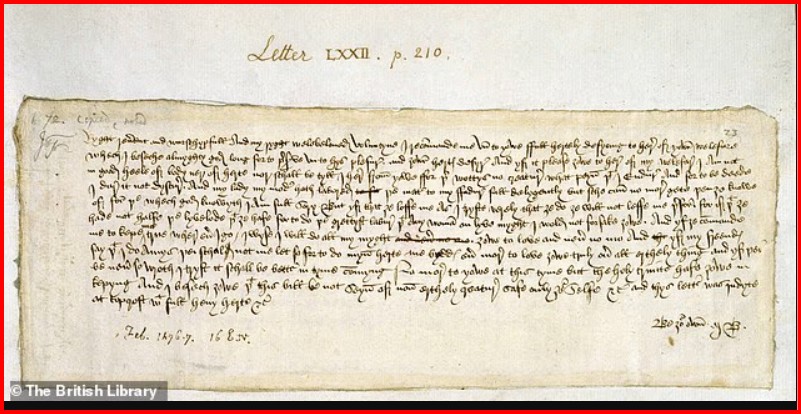 Letter LXXII. p. 210.
23
Ryght and worshypfull and my ryght welebeloved Voluntyne I recomande me vn to yowe full hertely desyring to here of yowr welefare
whech I beseche almyghty god long for to vn to hys plesur and yowr hertys desyr And yf it please yowe to here of my welefar I am not
in good heele of body ner of herte nor schall be tyll I here from yowe for þer wottys no creatur what peyn þat I endur And for to be deede
I dur it not dyscur And my lady my moder hath labored þe mater to my ffadur full delygently but sche can no mor gete þen ze knowe
of for þe whech god knowyth I am full sory But yf that ze loffe me as I tryste verely that ze do ze will not leffe me þerfor for if þat ze
hade not halfe þe lyvelode þat ze hafe for to do þe grettyst labur þat any woman on lyve myght I wold not forsake zowe And yf ze comande
me to kepe me true wher euer I go I wyse I will do all my myght zowe to love and neuer no mo And yf my freendys
say þat I do amys þei schal not me let so for to do myn herte me byddys euer mor to love zowe truly ouer all erthely thing and yf þei
be neuer so wroth I tryst it schall be bettur in tyme comyng No mor to yowe at this tyme but the holy trinite hafe zowe in
kepyng And I besech zowe þat this bill be not seyn of non erthely creatur safe only zour selfe &c And thys letter was indyte
at topcroft wt full hevy herte &c
Be zour own M B.
Feb. 1476-7. 16 E. IV.
© The British Library